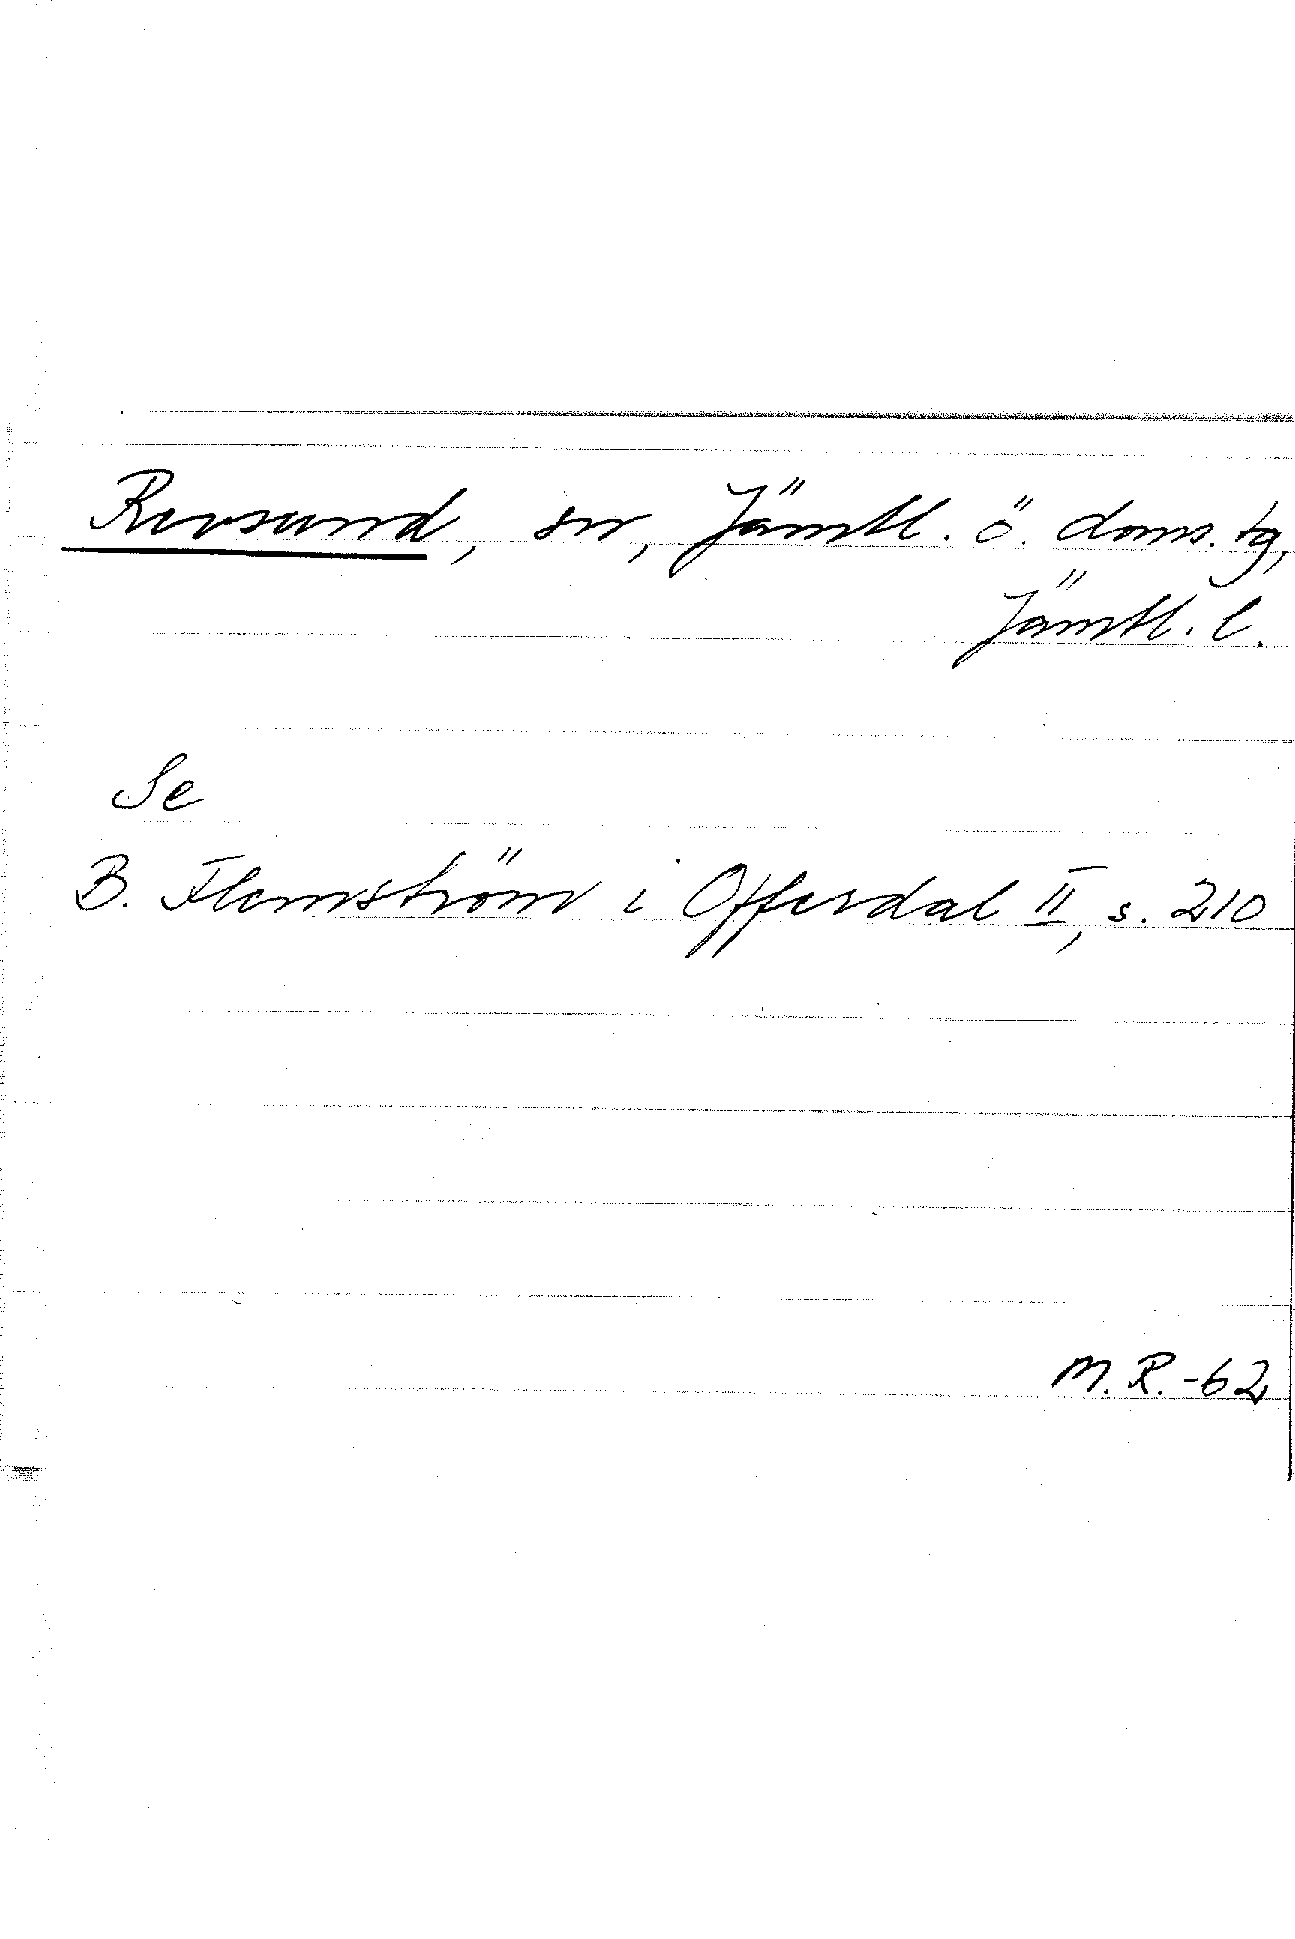 Revsund, sn, Jämtl. ö. doms. tg,
Jämtl. l.
Se
B. Flemström i Offerdal II, s. 210
M.R.-62